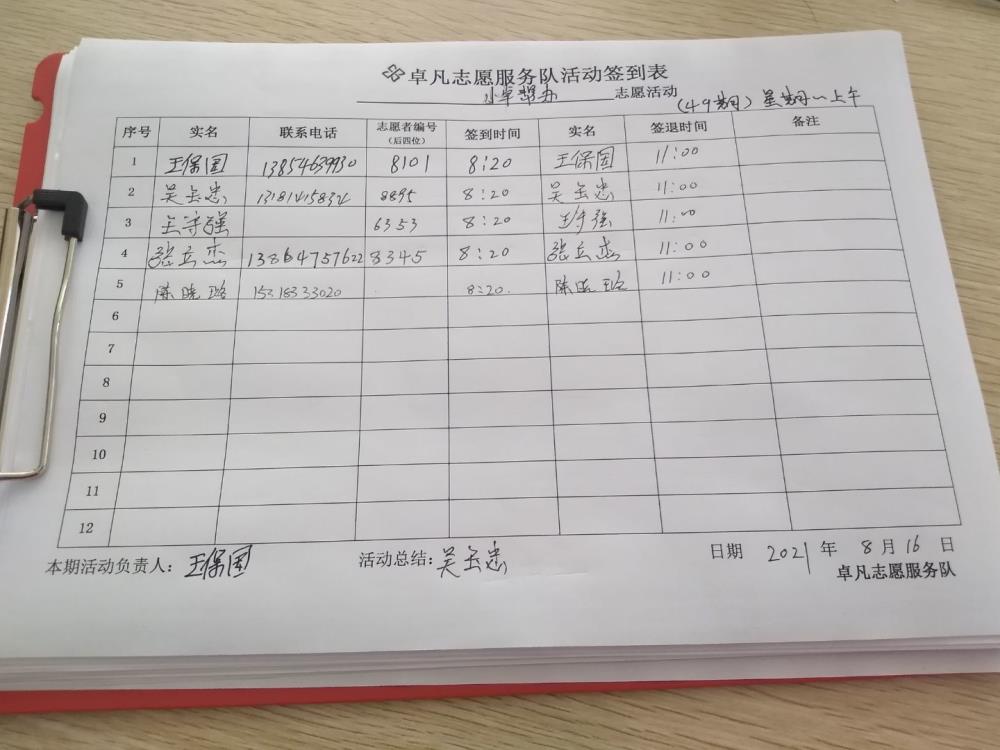 卓凡志愿服务队活动签到表
小卓帮办 志愿活动 (49期) 星期一上午
序号 实名 联系电话 志愿者编号 (后四位) 签到时间 实名 签退时间 备注
1 王保国 13854639930 8101 8:20 王保国 11:00
2 吴玉忠 8895 8:20 吴玉忠 11:00
3 王守强 6353 8:20 王守强 11:00
4 张立杰 13864757622 8345 8:20 张立杰 11:00
5 陈晓璐 15318333020 8:20. 陈晓璐 11:00
6
7
8
9
10
11
12
本期活动负责人: 王保国 活动总结: 吴玉忠 日期 2021 年 8 月 16 日
卓凡志愿服务队